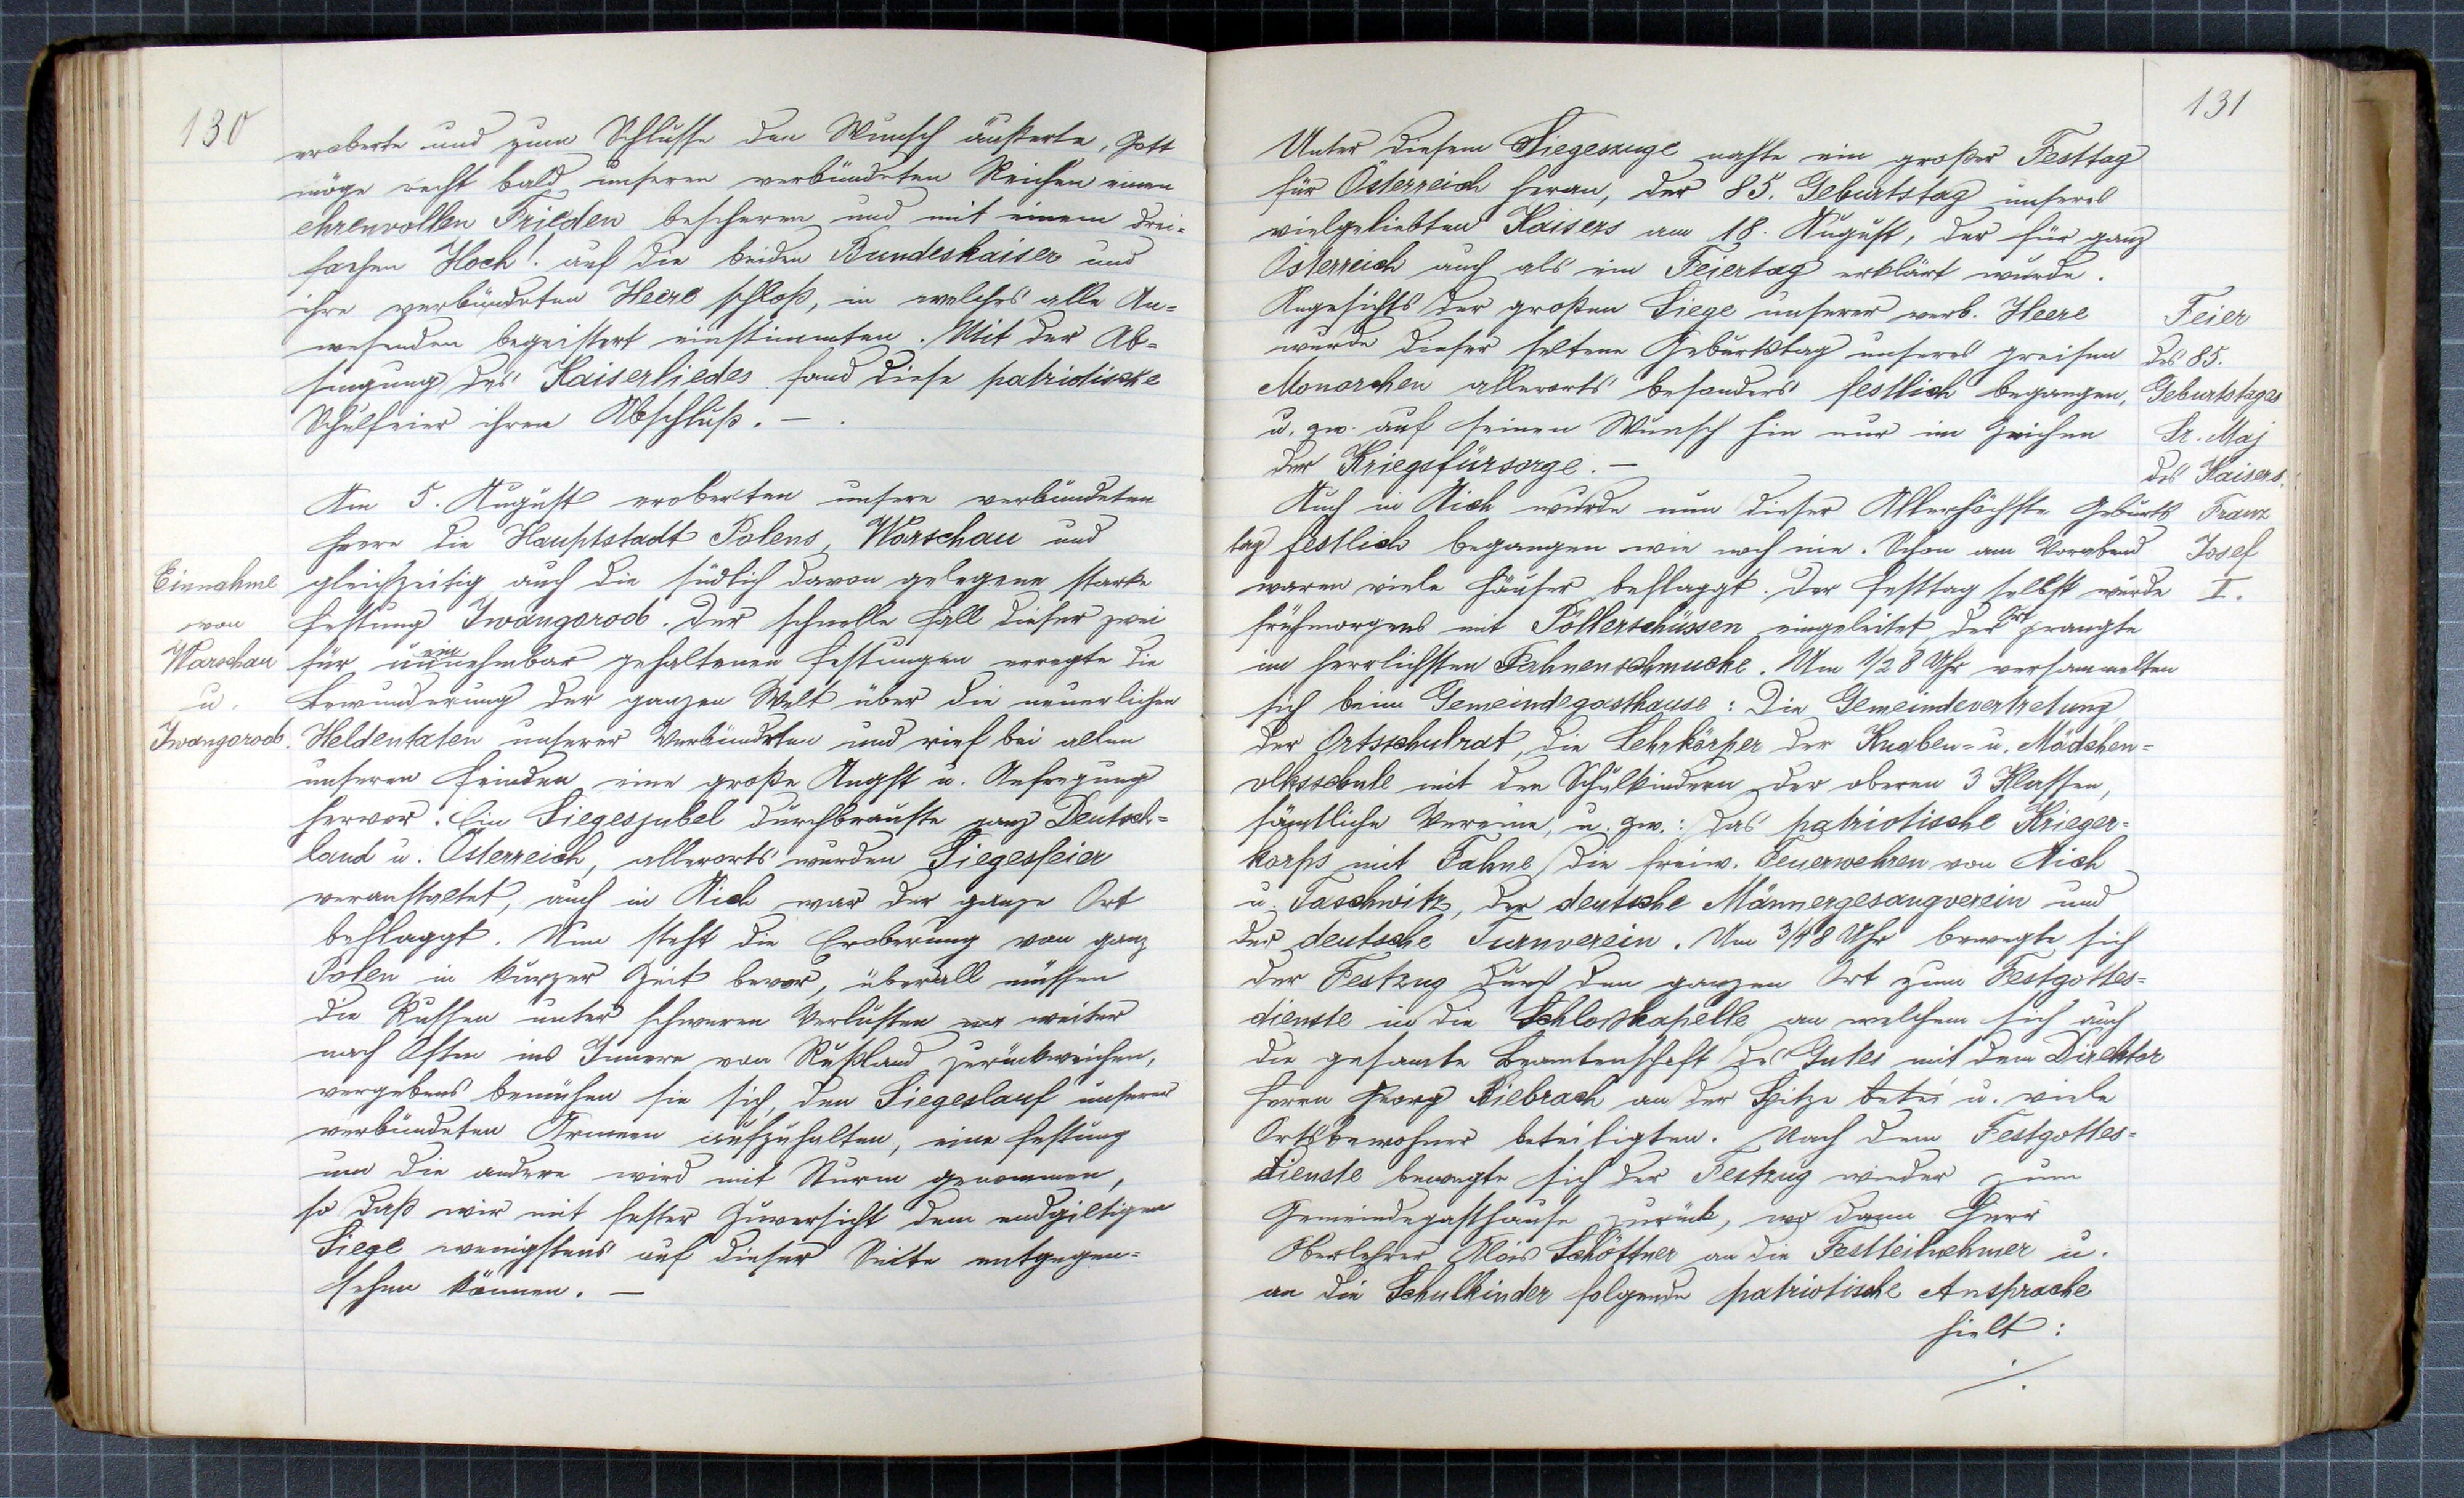 130
eroberte und zum Schlusse den Wunsch äußerte, Gott
möge recht bald unseren verbündeten Reichen einen
ehrenvollen Frieden bescheren und mit einem drei-
fachen Hoch! auf die beiden Bundeskaiser und
ihre verbündeten Heere schloß, in welches alle An-
wesenden begeistert einstimmten. Mit der Ab-
singung des Kaiserliedes fand diese patriotische
Schulfeier ihren Abschluß. –
Am 5. August eroberten unsere verbündeten
Heere die Hauptstadt Polens, Warschau und
gleichzeitig auch die südlich davon gelegene starke
Festung Iwangorod. Der schnelle Fall dieser zwei
für uneinnehmbar gehaltenen Festungen erregte die
Bewunderung der ganzen Welt über die neuerlichen
Heldentaten unserer Verbündeten und rief bei allen
unseren Feinden eine große Angst u. Aufregung
hervor. Ein Siegesjubel durchbrauste ganz Deutsch-
land u. Österreich, allerorts wurden Siegesfeier
veranstaltet, auch in Aich war der ganze Ort
beflaggt. Nun steht die Eroberung von ganz
Polen in kurzer Zeit bevor, überall müssen
die Russen unter schweren Verlusten weiter
nach Osten ins Innere von Rußland zurückweichen,
vergebens bemühen sie sich, den Siegeslauf unserer
verbündeten Armeen aufzuhalten, eine Festung
um die andere wird mit Sturm genommen,
so daß wir mit fester Zuversicht dem endgiltigen
Siege wenigstens auf dieser Seite entgegen-
sehen können. –
Einnahme
von
Warschau
u.
Iwangorod.
131
Unter diesem Siegeszuge nahte ein großer Festtag
für Österreich heran, der 85. Geburtstag unseres
vielgeliebten Kaisers am 18. August, der für ganz
Österreich auch als ein Feiertag erklärt wurde.
Angesichts der großen Siege unserer verb. Heere
wurde dieser seltene Geburtstag unseres greisen
Monarchen allerorts besonders festlich begangen,
u. zw. auf seinen Wunsch hin nur im Zeichen
der Kriegsfürsorge. –
Auch in Aich wurde nun dieser Allerhöchste Geburts
tag festlich begangen wie noch nie. Schon am Vorabend
waren viele Häuser beflaggt. Der Festtag selbst wurde
frühmorgens mit Pöllerschüssen eingeleitet, der Ort prangte
im herrlichsten Fahnenschmucke. Um 1/2 8 Uhr versammelten
sich beim Gemeindegasthause: Die Gemeindevertretung
der Ortsschulrat, die Lehrkörper der Knaben- u. Mädchen-
volksschule mit den Schulkindern der oberen 3 Klassen,
sämtliche Vereine, u. zw.: das patriotische Krieger-
korps mit Fahne, die freiw. Feuerwehren von Aich
u. Taschwitz, der deutsche Männergesangverein und
der deutsche Turnverein. Um 3/4 8 Uhr bewegte sich
der Festzug durch den ganzen Ort zum Festgottes-
dienste in die Schloßkapelle, an welchem sich auch
die gesamte Beamtenschaft des Gutes mit dem Direktor
Herrn Georg Biebrach an der Spitze betei u. viele
Ortsbewohner beteiligten. Nach dem Festgottes-
dienste bewegte sich der Festzug wieder zum
Gemeindegasthause zurück, wo dann Herr
Oberlehrer Alois Schöttner an die Festteilnehmer u.
an die Schulkinder folgende patriotische Ansprache
hielt:
./.
Feier
des 85.
Geburtstages
Sr. Maj
des Kaisers
Franz
Josef
I.